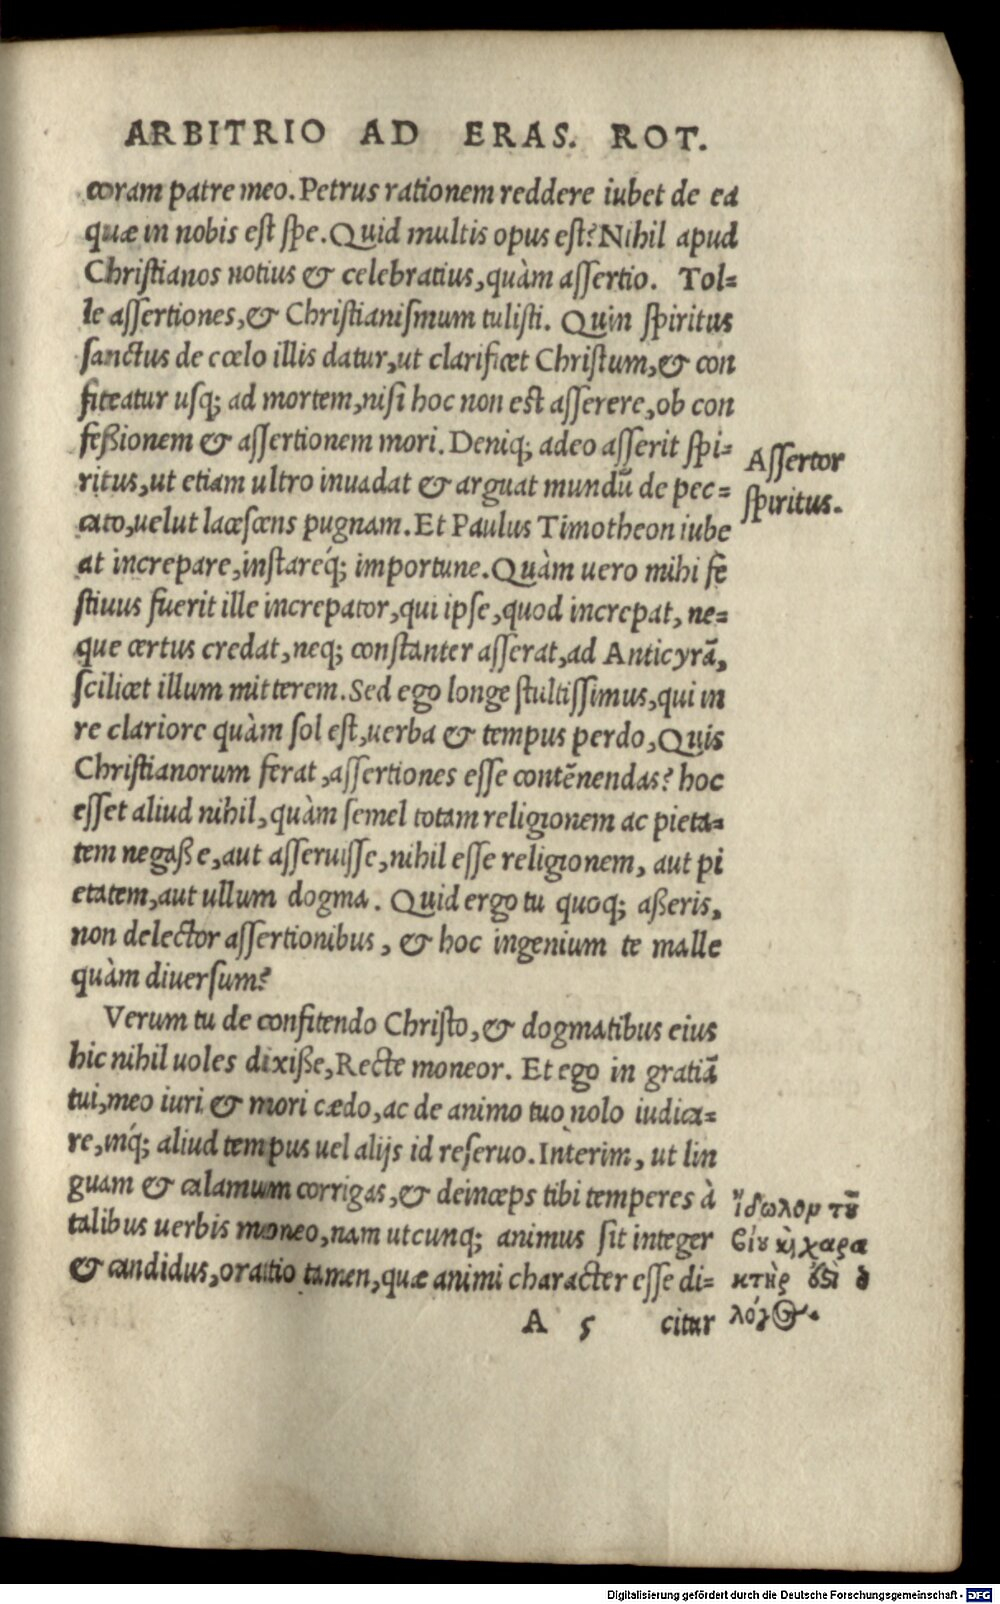 ARBITRIO AD ERAS. ROT.
coram patre meo. Petrus rationem reddere iubet de ea
quæ in nobis est spe. Quid multis opus est? Nihil apud
Christianos notius & celebratius, quàm assertio. Tol=
le assertiones, & Christianismum tulisti. Quin spiritus
sanctus de cœlo illis datur, ut clarificet Christum, & con
fiteatur usq; ad mortem, nisi hoc non est asserere, ob con
feßionem & assertionem mori. Deniq; adeo asserit spi=
ritus, ut etiam ultro inuadat & arguat mundũ de pec=
cato, uelut lacescens pugnam. Et Paulus Timotheon iube
at increpare, instareq́; importune. Quàm uero mihi fe
stiuus fuerit ille increpator, qui ipse, quod increpat, ne=
que certus credat, neq; constanter asserat, ad Anticyrã,
scilicet illum mitterem. Sed ego longe stultissimus, qui in
re clariore quàm sol est, uerba & tempus perdo, Quis
Christianorum ferat, assertiones esse contẽnendas? hoc
esset aliud nihil, quàm semel totam religionem ac pieta=
tem negaße, aut asseruisse, nihil esse religionem, aut pi
etatem, aut ullum dogma. Quid ergo tu quoq; aßeris,
non delector assertionibus, & hoc ingenium te malle
quàm diuersum?
Verum tu de confitendo Christo, & dogmatibus eius
hic nihil uoles dixiße, Recte moneor. Et ego in gratiã
tui, meo iuri & mori cædo, ac de animo tuo nolo iudica=
re, inq́; aliud tempus uel alijs id reseruo. Interim, ut lin
guam & calamum corrigas, & deinceps tibi temperes à
talibus uerbis moneo, nam utcunq; animus sit integer
& candidus, oratio tamen, quæ animi character esse di=
A 5 citur
Assertor
spiritus.
ἴδωλον τȣ͂
βίου κὶ χαρα
κτὴρ ὅ̓δὶ ὁ
λόγ<span>Ꙩ</span>.